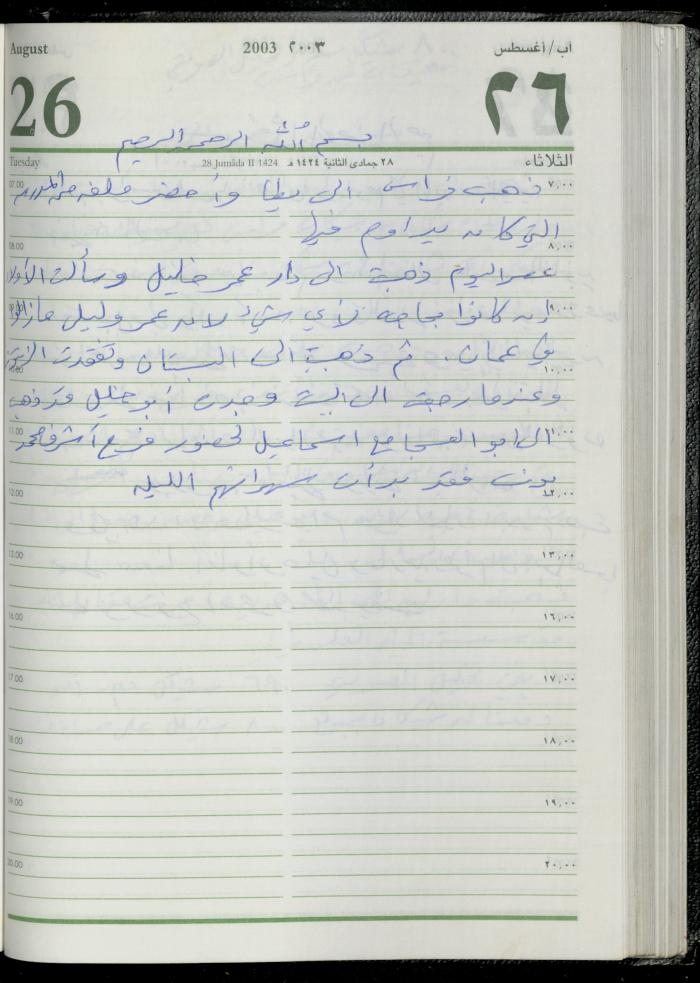 August 2003 ٢٠٠٣ آب/أغسطس
26 ٢٦
بسم الله الرحمن الرحيم
Tuesday 28 Jumâda II 1424 ٢٨ جمادى الثانية ١٤٢٤ هـ الثلاثاء
07.00 ذهب فراس الى يطا وأحضر ملفه من المدرسة ٧,٠٠
التي كان يداوم فيها
08.00 ٨,٠٠
عصر اليوم ذهبت الى دار عمر خليل وسألت الأولاد
إن كانوا بحاجه لأي شيء لان عمر وليلى مازالوا ٩,٠٠
في عمان. ثم ذهبت الى البستان وتفقدت الزيتون
١٠,٠٠
وعندما رجعت الى البيت وجدت أبو خليل قد ذهب
11.00 الى ابو العبد مع اسماعيل لحضور فرح أشرف محمد ١١,٠٠
يونس فقد بدأت سهراتهم الليله
12.00 ١٢,٠٠
13.00 ١٣,٠٠
16.00 ١٦,٠٠
17.00 ١٧,٠٠
18.00 ١٨,٠٠
19.00 ١٩,٠٠
20.00 ٢٠,٠٠